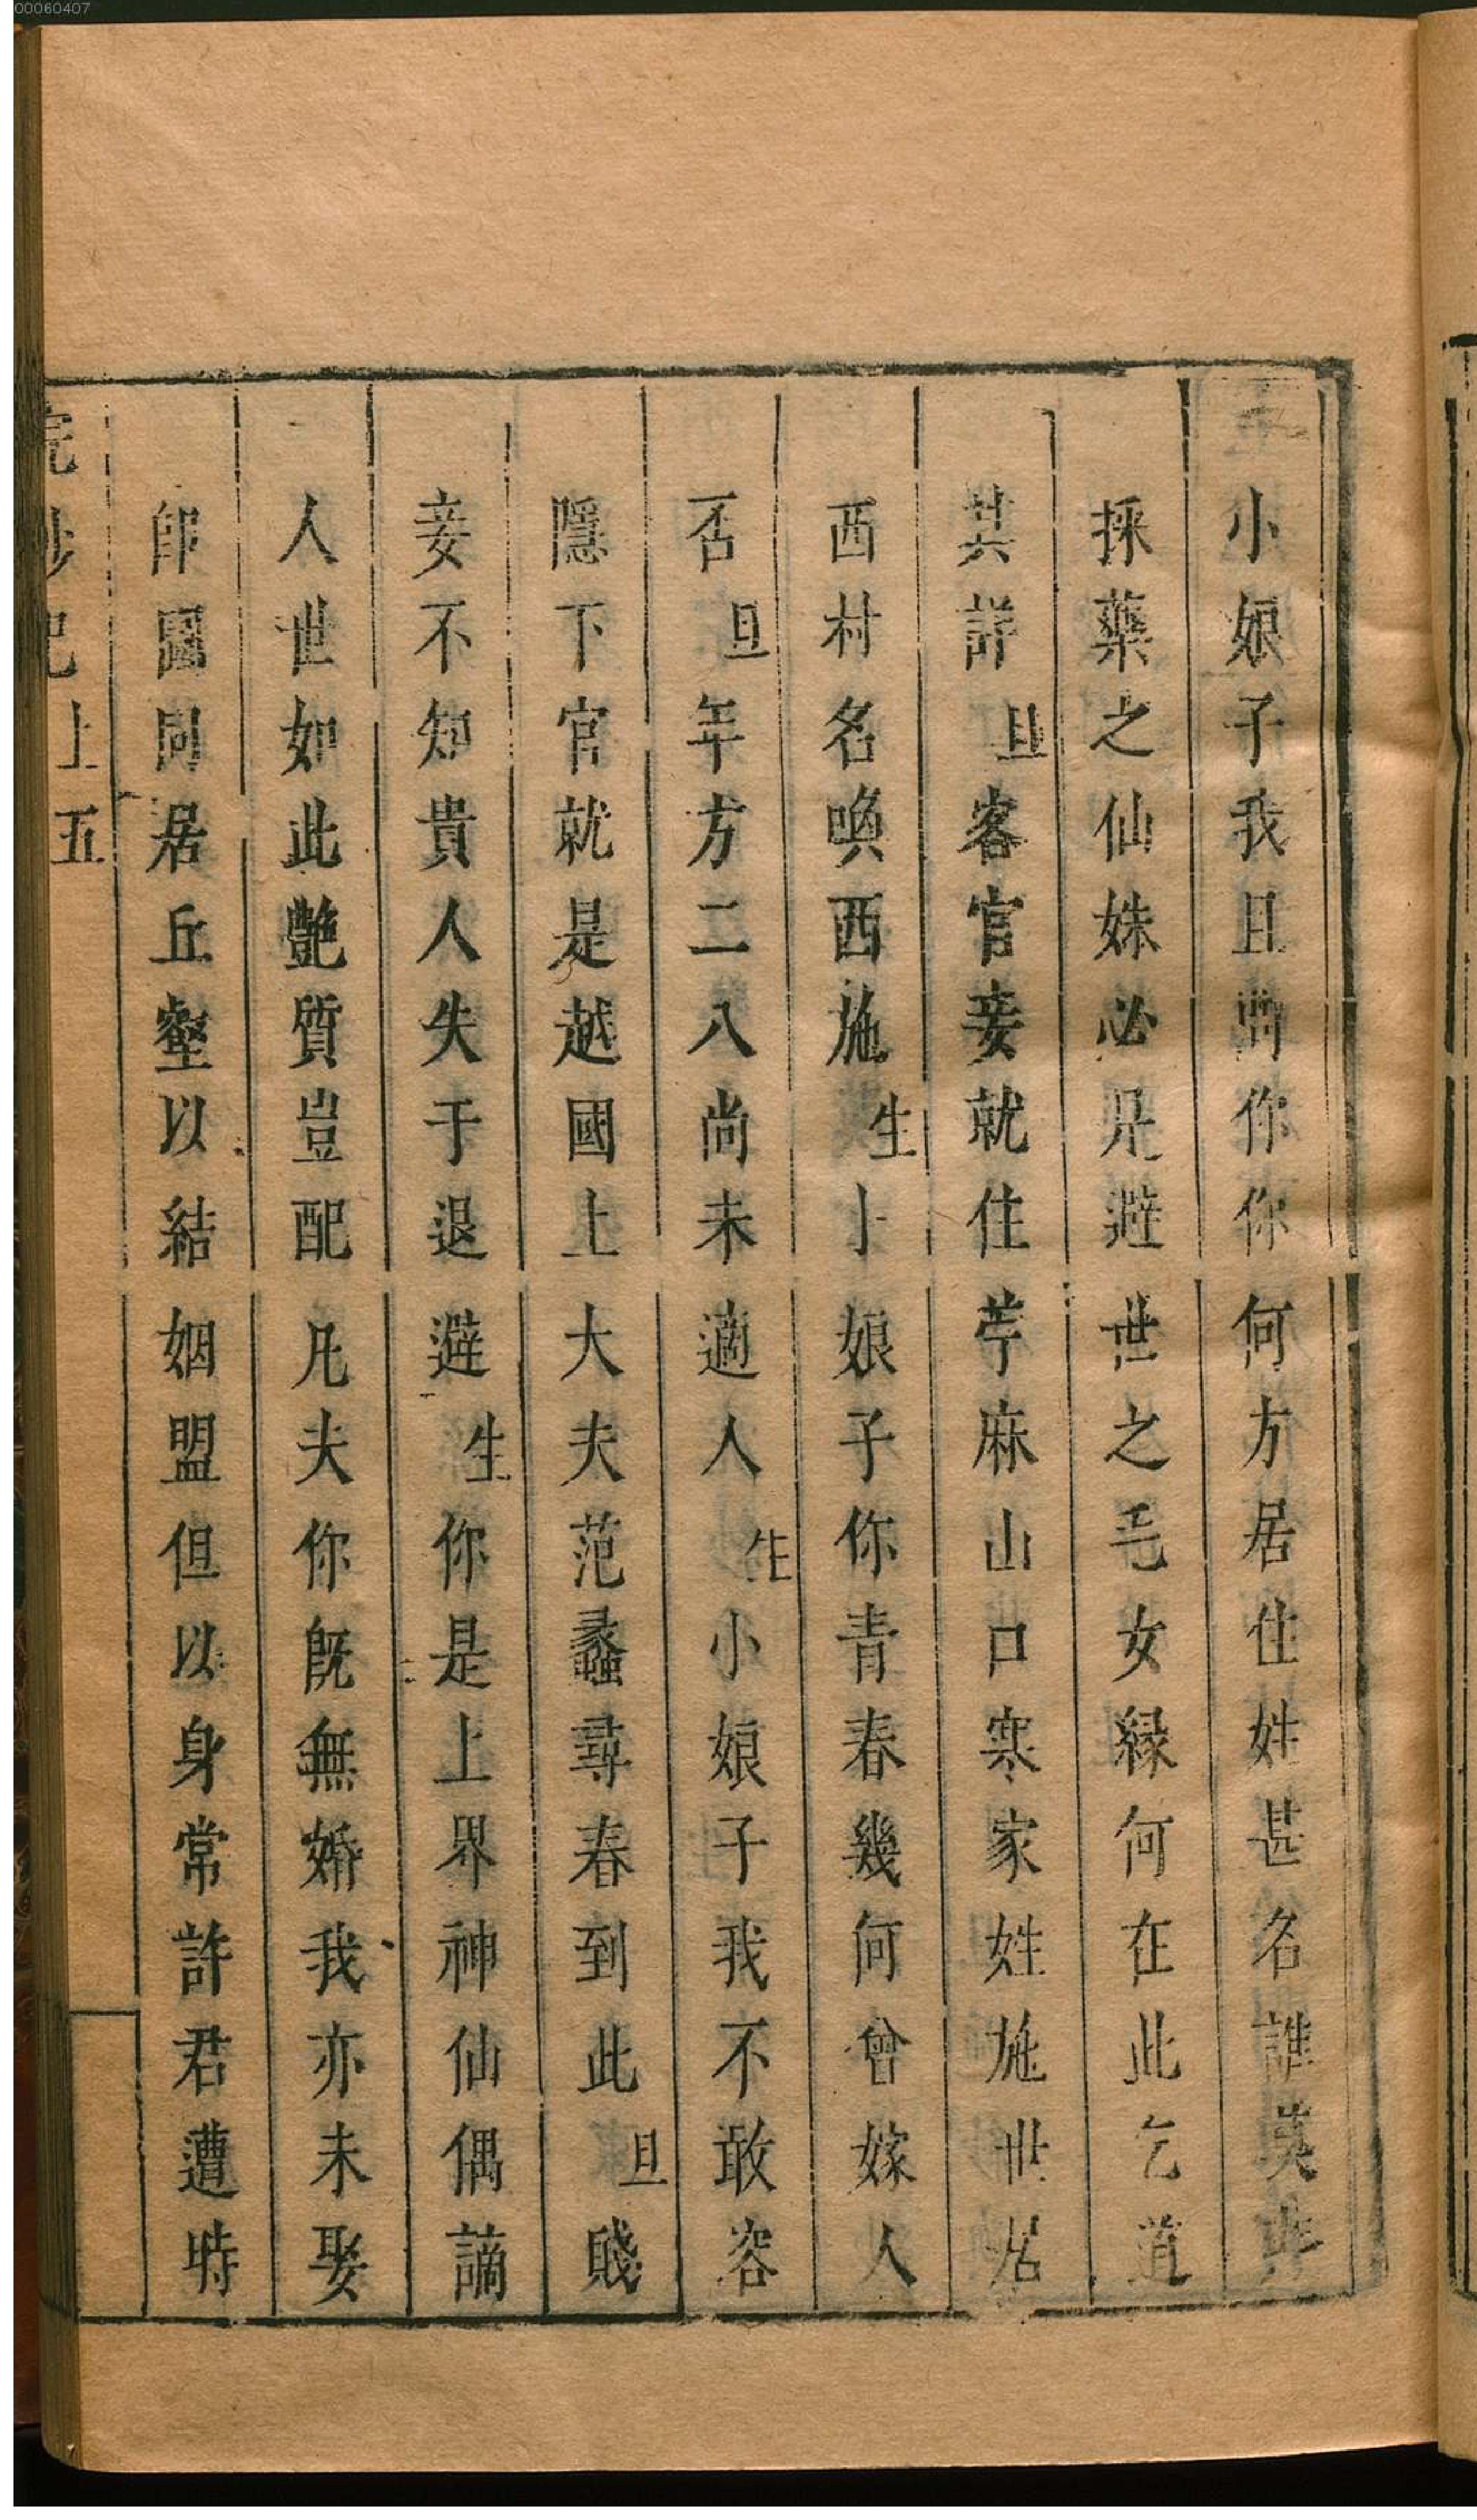 00060407
小娘子我且問你你何方居住姓甚名誰莫非
採藥之仙姝必是避世之毛女緣何在此乞道
其詳旦客官妾就住苧麻山口寒家姓施世居
西村名喚西施生小娘子你青春幾何曾嫁人
否旦年方二八尚未適人生小娘子我不敢容
隱下官就是越國上大夫范蠡尋春到此旦賤
妾不知貴人失于退避生你是上界神仙偶謫
人世如此艷質豈配凡夫你既無婚我亦未娶
卽圖同居丘壑以結姻盟但以身常許君遭時
浣紗記上五